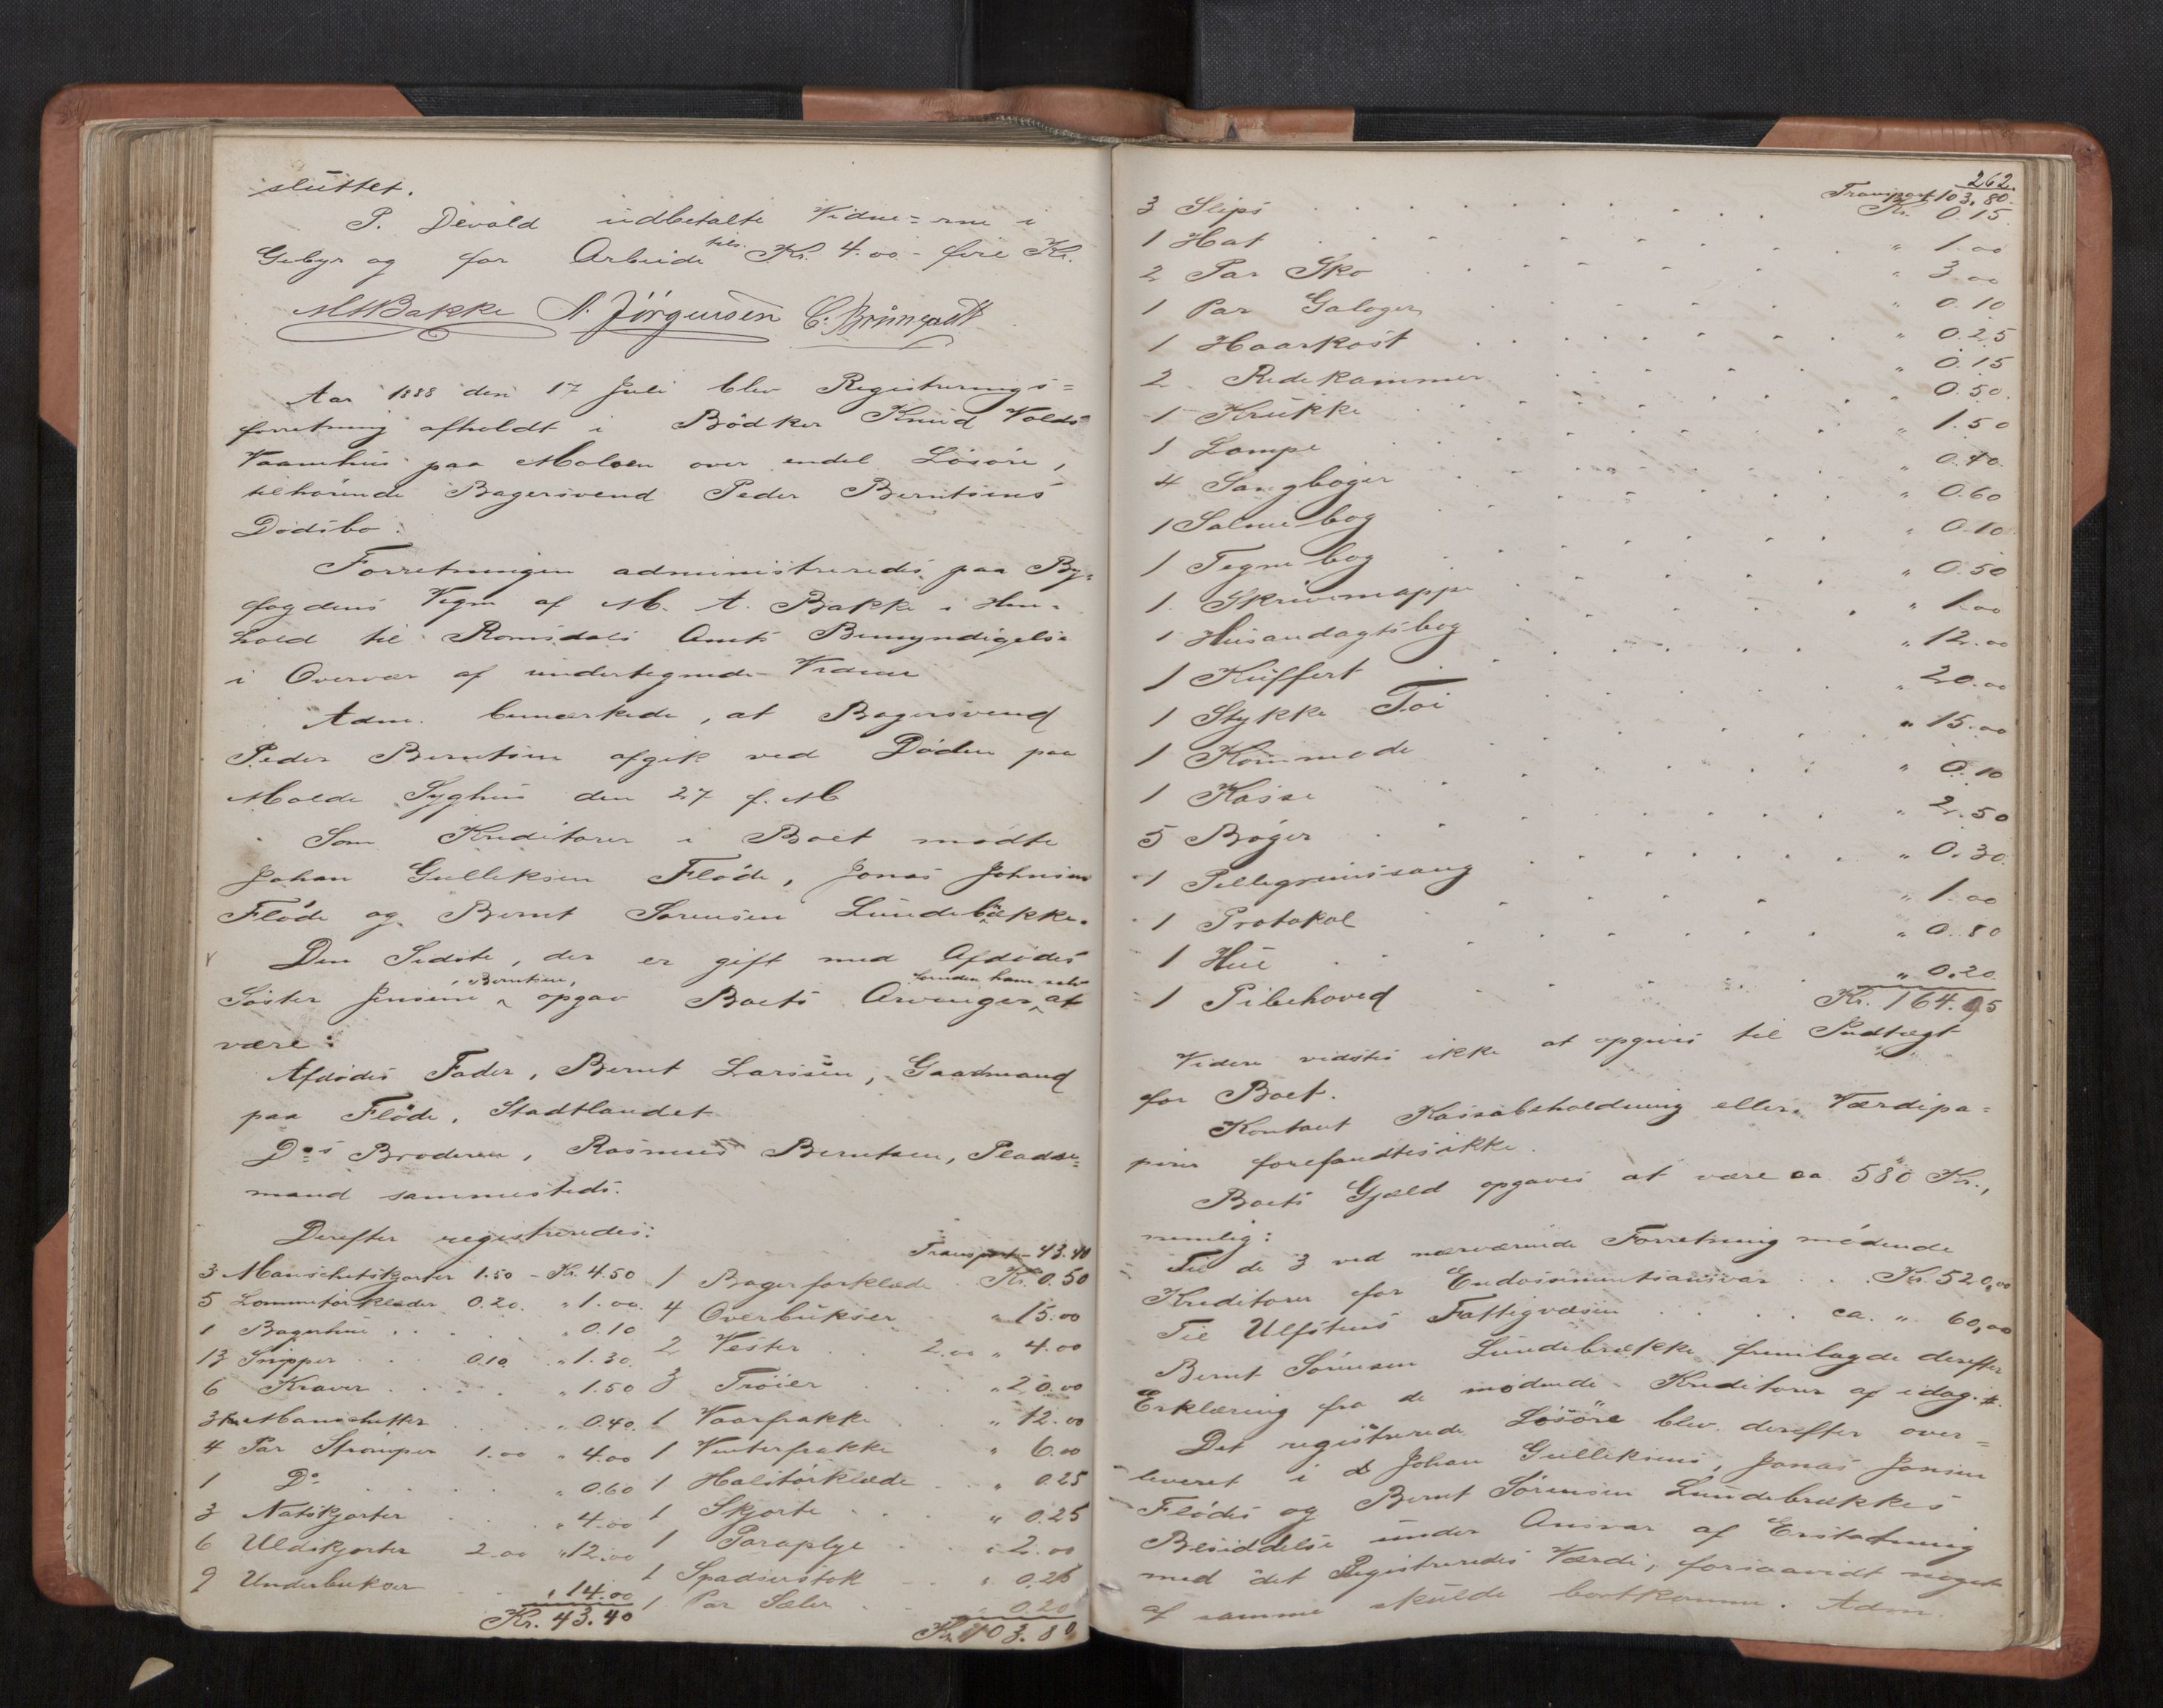 sluttet.
P. Devold udbetalte Vidne=rne i
Gebyr og for Arbeide tils. Kr. 4.00 - fire Kr.
M A Bakke A. Jörgensen
Aar 1888 den 17 Juli blev Registrerings=
forretning afholdt i Bödker Knud Volds
Vaanhus paa Moloen over endel Lösöre,
tilhörende Bagersvend Peder Berntsens
Dödsbo.
Forretningen administreredes paa By-
fogdens Vegne af M. A. Bakke i Hen-
hold til Romsdals Amts Bemyndigelse
i Overvær af undertegnede Vidner
Adm. bemærkede, at Bagersvend
Peder Berntsen afgik ved Döden paa
Molde Syghus den 27 f. M
Som Kreditorer i Boet mödte
Johan Gulleksen Flöde, Jonas Johnsen
Flöde og Bernt Sörensen Lundebrække.
Den Sidste, der er gift med Afdödes
Söster Jensine Berntsen, opgav Boets Arvinger foruden ham selv at
være:
Afdödes Fader, Bernt Larsen, Gaardmand
paa Flöde, Stadtlandet
Do's Broderen, Rasmus Berntsen, Pladse=
mand sammesteds.
Derefter registreredes:
3 Manschetskjorter 1.50 - Kr. 4.50
5 Lommetörklæder 0.20. " 1.00.
1 Bagerhue . . . " 0.10
13 Snipper . . . 0.10 " 1.30
6 Kraver . . . " 1.50
3 Par Manschetter . . . " 0.40.
4 Par Strömper 1.00 " 4.00
1 Do . . . " 0.60
3 Natskjorter . . . " 4.00
6 Uldskjorter 2.00 " 12.00
9 Underbukser . . . " 14.00
Kr. 43.40
Transport - 43.40
1 Bagerforklæde . Kr. 0.50
4 Overbukser " 15.00
2 Vester . . 2.00 " 4.00
3 Tröier . . . " 20.00
1 Vaarfrakke . . " 12.00
1 Vinterfrakke " 6.00
1 Halstörklæde . . " 0.25
1 Skjorte . . . " 0.25
1 Paraplye . . " 2.00
1 Spadserstok . . " 0.25
1 Par Seler . . " 0.20
Kr. 103.80
262.
Transport 103.80.
3 Slips . . . Kr. 0.15
1 Hat . . . " 1.00
2 Par Sko . . . " 3.00
1 Par Galoger . . . " 0.10
1 Haarkost . . . " 0.25
2 Redekammer . . . " 0.15
1 Krukke . . . " 0.50.
1 Lampe . . . " 1.50
4 Sangböger . . . " 0.40.
1 Salmebog . . . " 0.60
1 Tegnebog . . . " 0.10
1. Skrivemappe . . . " 0.50
1 Husandagtsbog . . . " 1.00
1 Kuffert . . . " 12.00
1 Stykke Töi . . . " 20.00
1 Kommode . . . " 15.00
1 Kasse . . . " 0.10
5 Böger . . . " 2.50
1 Pillegrimssang . . . " 0.30.
1 Protokol . . . " 1.00
1 Hue . . . " 0.80
1 Pibehoved . . . " 0.20
Kr. 164.95
Videre vidstes ikke at opgives til Indtægt
for Boet.
Kontant Kassabeholdning eller Værdipa=
pirer forefandtes ikke.
Boets Gjæld opgaves at være ca 580 Kr.,
nemlig:
Til de 3 ved nærværende Forretning mödende
Kreditorer for Endossementsansvar . . . Kr. 520,00
Til Ulfstens Fattigvæsen . . . ca. " 60,00
Bernt Sörensen Lundebrække fremlagde derefter
Erklæring fra de mödende Kreditorer af idag.
Det registrerede Lösöre blev derefter over=
leveret i Johan Gulleksens, Jonas Jonsen
Flödes og Bernt Sörensen Lundebrækkes
Besiddelse under Ansvar af Erstatning
med det Registreredes Værdi, forsaavidt noget
af samme skulde bortkomme. Adm.